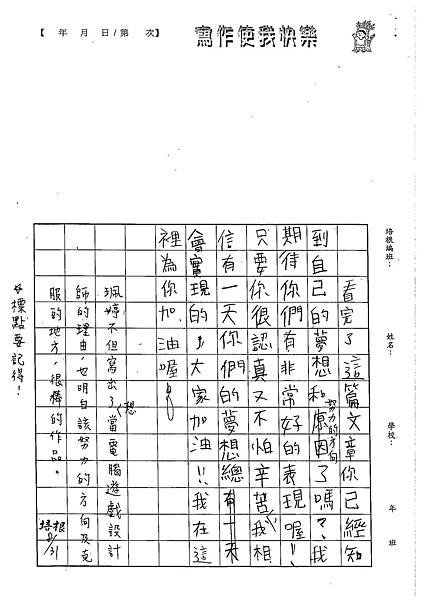 【 年 月 日/第 次】
寫作使我快樂
培根編班：
姓名：
學校：
年 班
看完了這篇文章你已經知
到自己的夢想和原因了嗎?我
努力的方向
期待你們有非常好的表現喔!!
只要你很認真又不怕辛苦我相
信有一天你們的夢想總有一天
會實現的!大家加油!!我在這
裡為你加油喔!
珮婷不但寫出了想當電腦遊戲設計
師的理由,也明白該努力的方向及克
服的地方,很棒的作品。
培根
8/31
標點要記得!